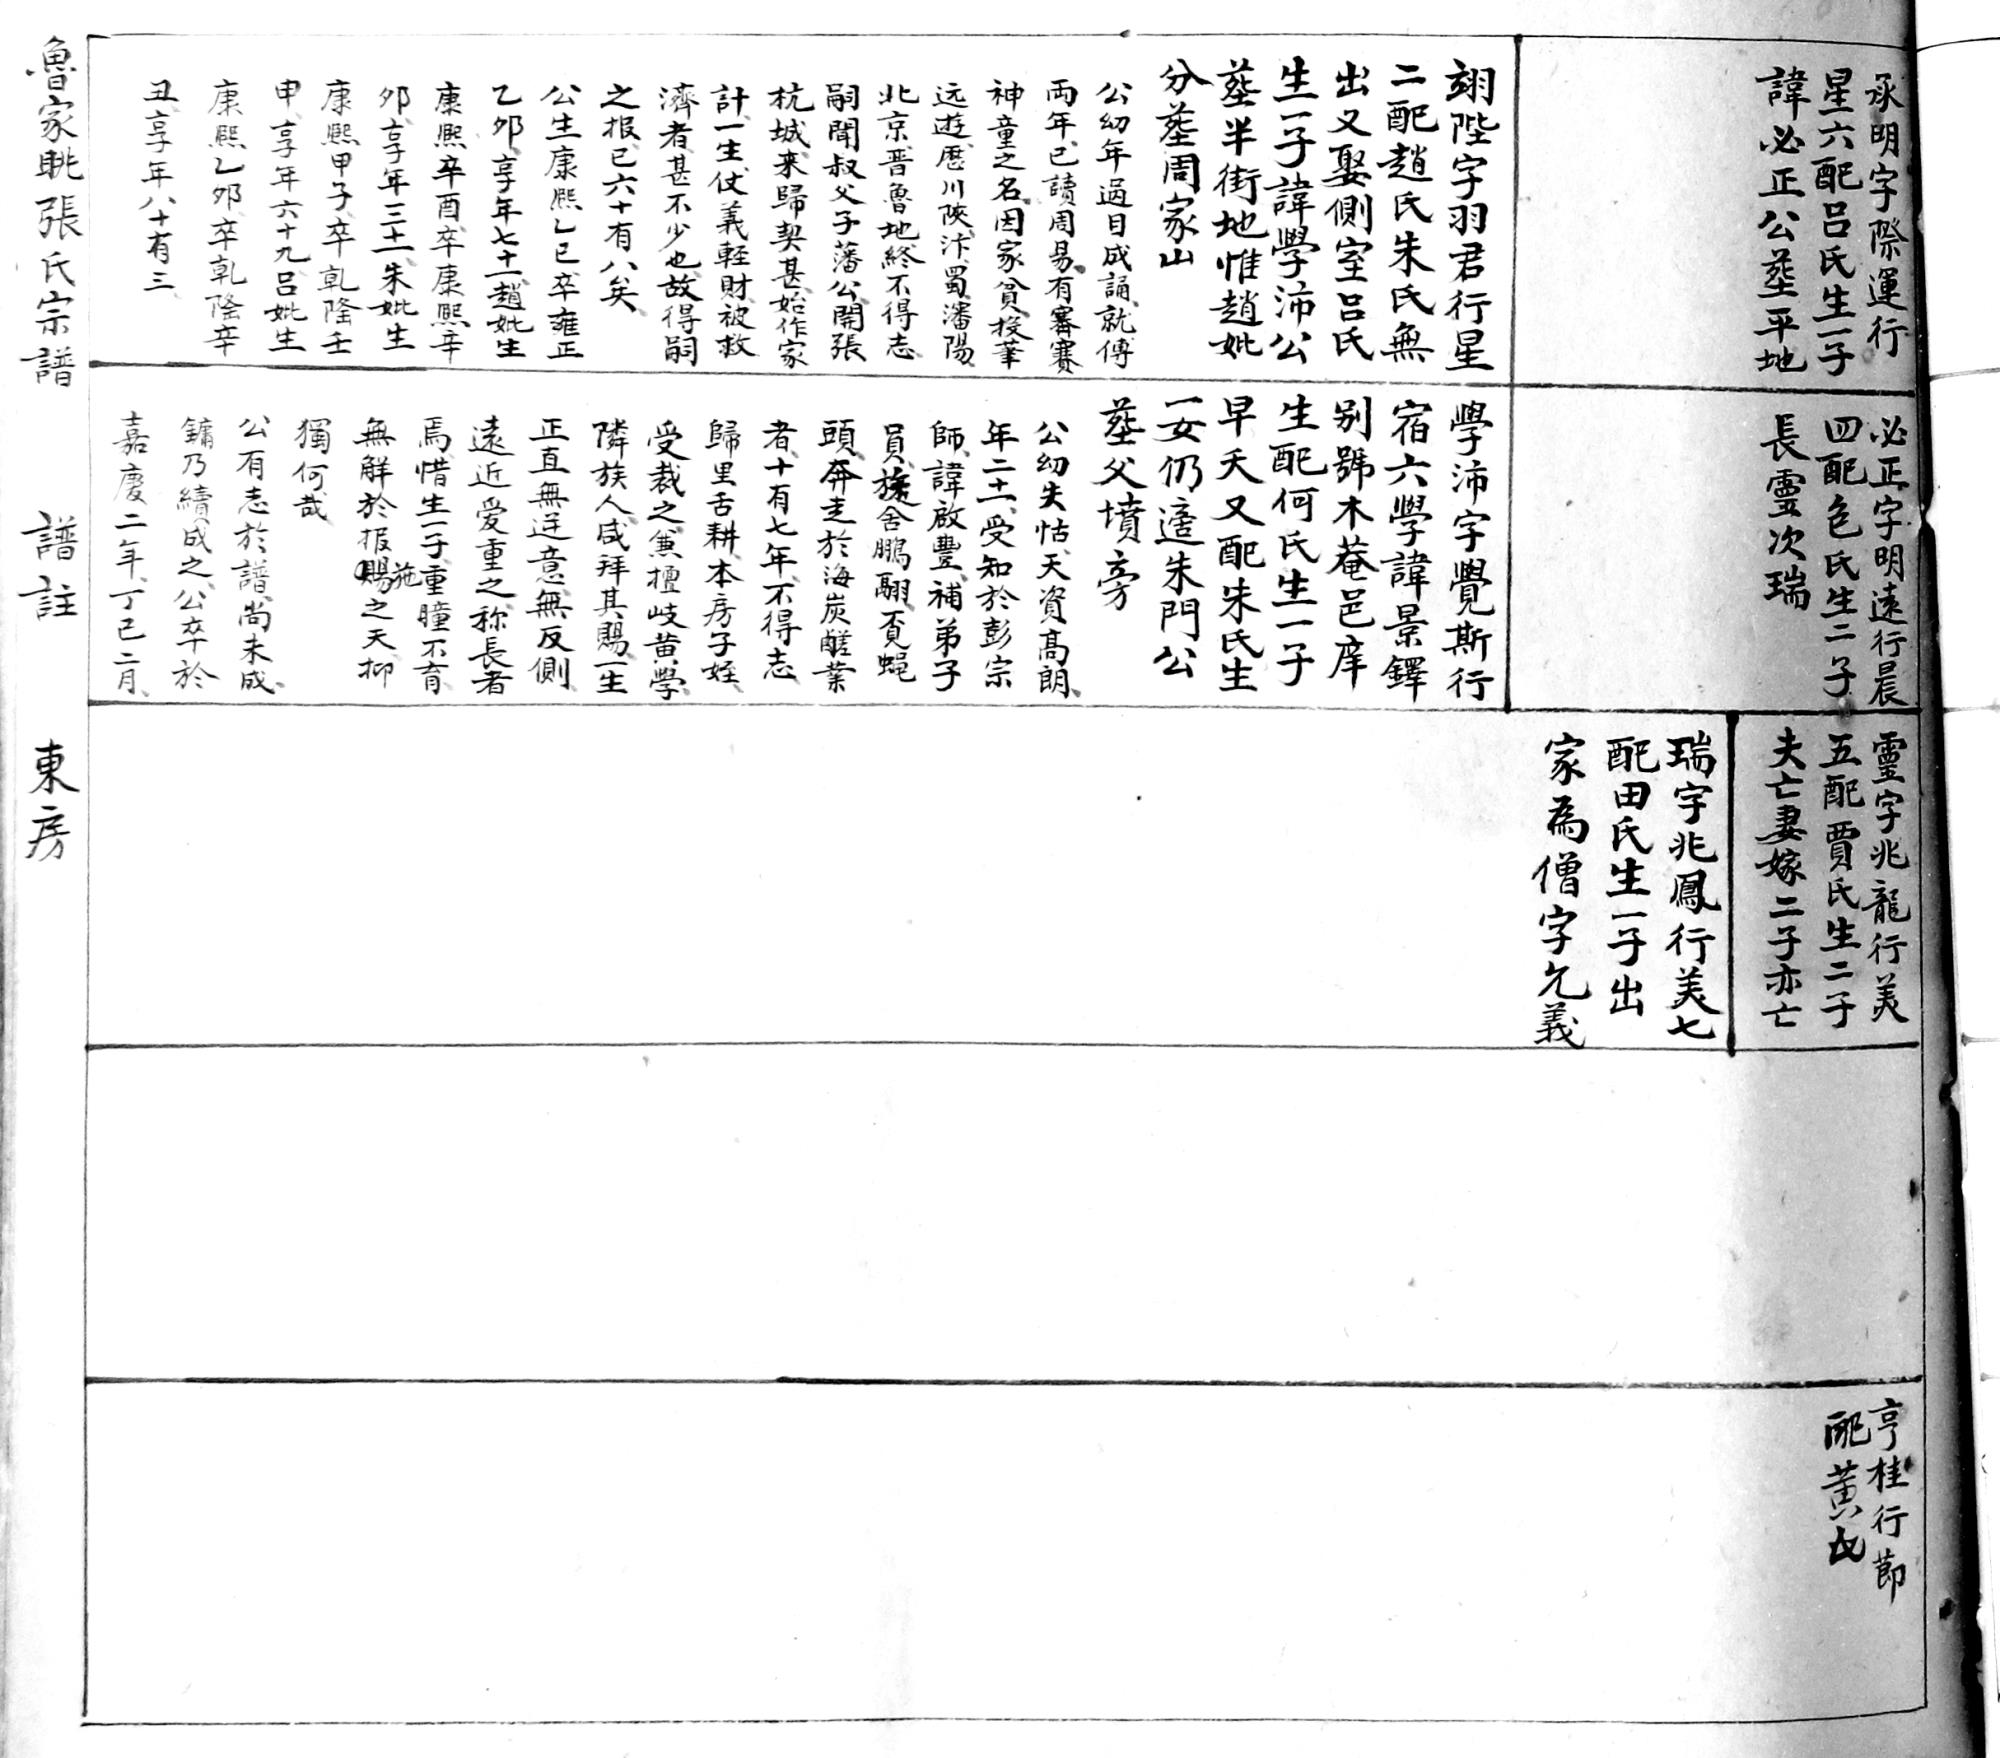 承明字際運行
星六配呂氏生一子
諱必正公塟平地
翊陛字羽君行星
二配趙氏朱氏無
出又娶側室呂氏
生一子諱學沛公
塟半街地惟趙妣
分塟周家山
公幼年過目成誦就傅
両年已讀周易有審賽
神童之名因家貧投筆
远遊歷川陝汴蜀瀋陽
北京晋魯地終不得志
嗣聞叔父子藩公開張
杭城来歸契甚始作家
計一生仗義輕財被救
濟者甚不少也故得嗣
之报已六十有八矣
公生康熙乙巳卒雍正
乙夘享年七十一趙妣生
康熙辛酉卒康熙辛
夘享年三十一朱妣生
康熙甲子卒乹隆壬
申享年六十九呂妣生
康熙乙夘卒乹隆辛
丑享年八十有三
必正字明遠行晨
四配色氏生二子
長靈次瑞
學沛字覺斯行
宿六學諱景鐸
别號木菴邑庠
生配何氏生一子
早夭又配朱氏生
一女仍適朱門公
塟父墳旁
公幼失怙天資高朗
年二十一受知於彭宗
師諱啟豐補弟子
員族舍鵬翮覔蝇
頭奔走於海炭醝業
者十有七年不得志
歸里舌耕本房子姪
受裁之兼擅岐黄學
隣族人咸拜其賜一生
正直無迕意無反側
遠近愛重之称長者
焉惜生一子重瞳不育
無解於报施之天抑
獨何哉
公有志於譜尚未成
鏞乃續成之公卒於
嘉慶二年丁巳二月
靈字兆龍行美
五配賈氏生二子
夫亡妻嫁二子亦亡
瑞字兆鳳行美七
配田氏生一子出
家為僧字允義
亨桂行節
配黄氏
魯家眺張氏宗譜 譜註 東房